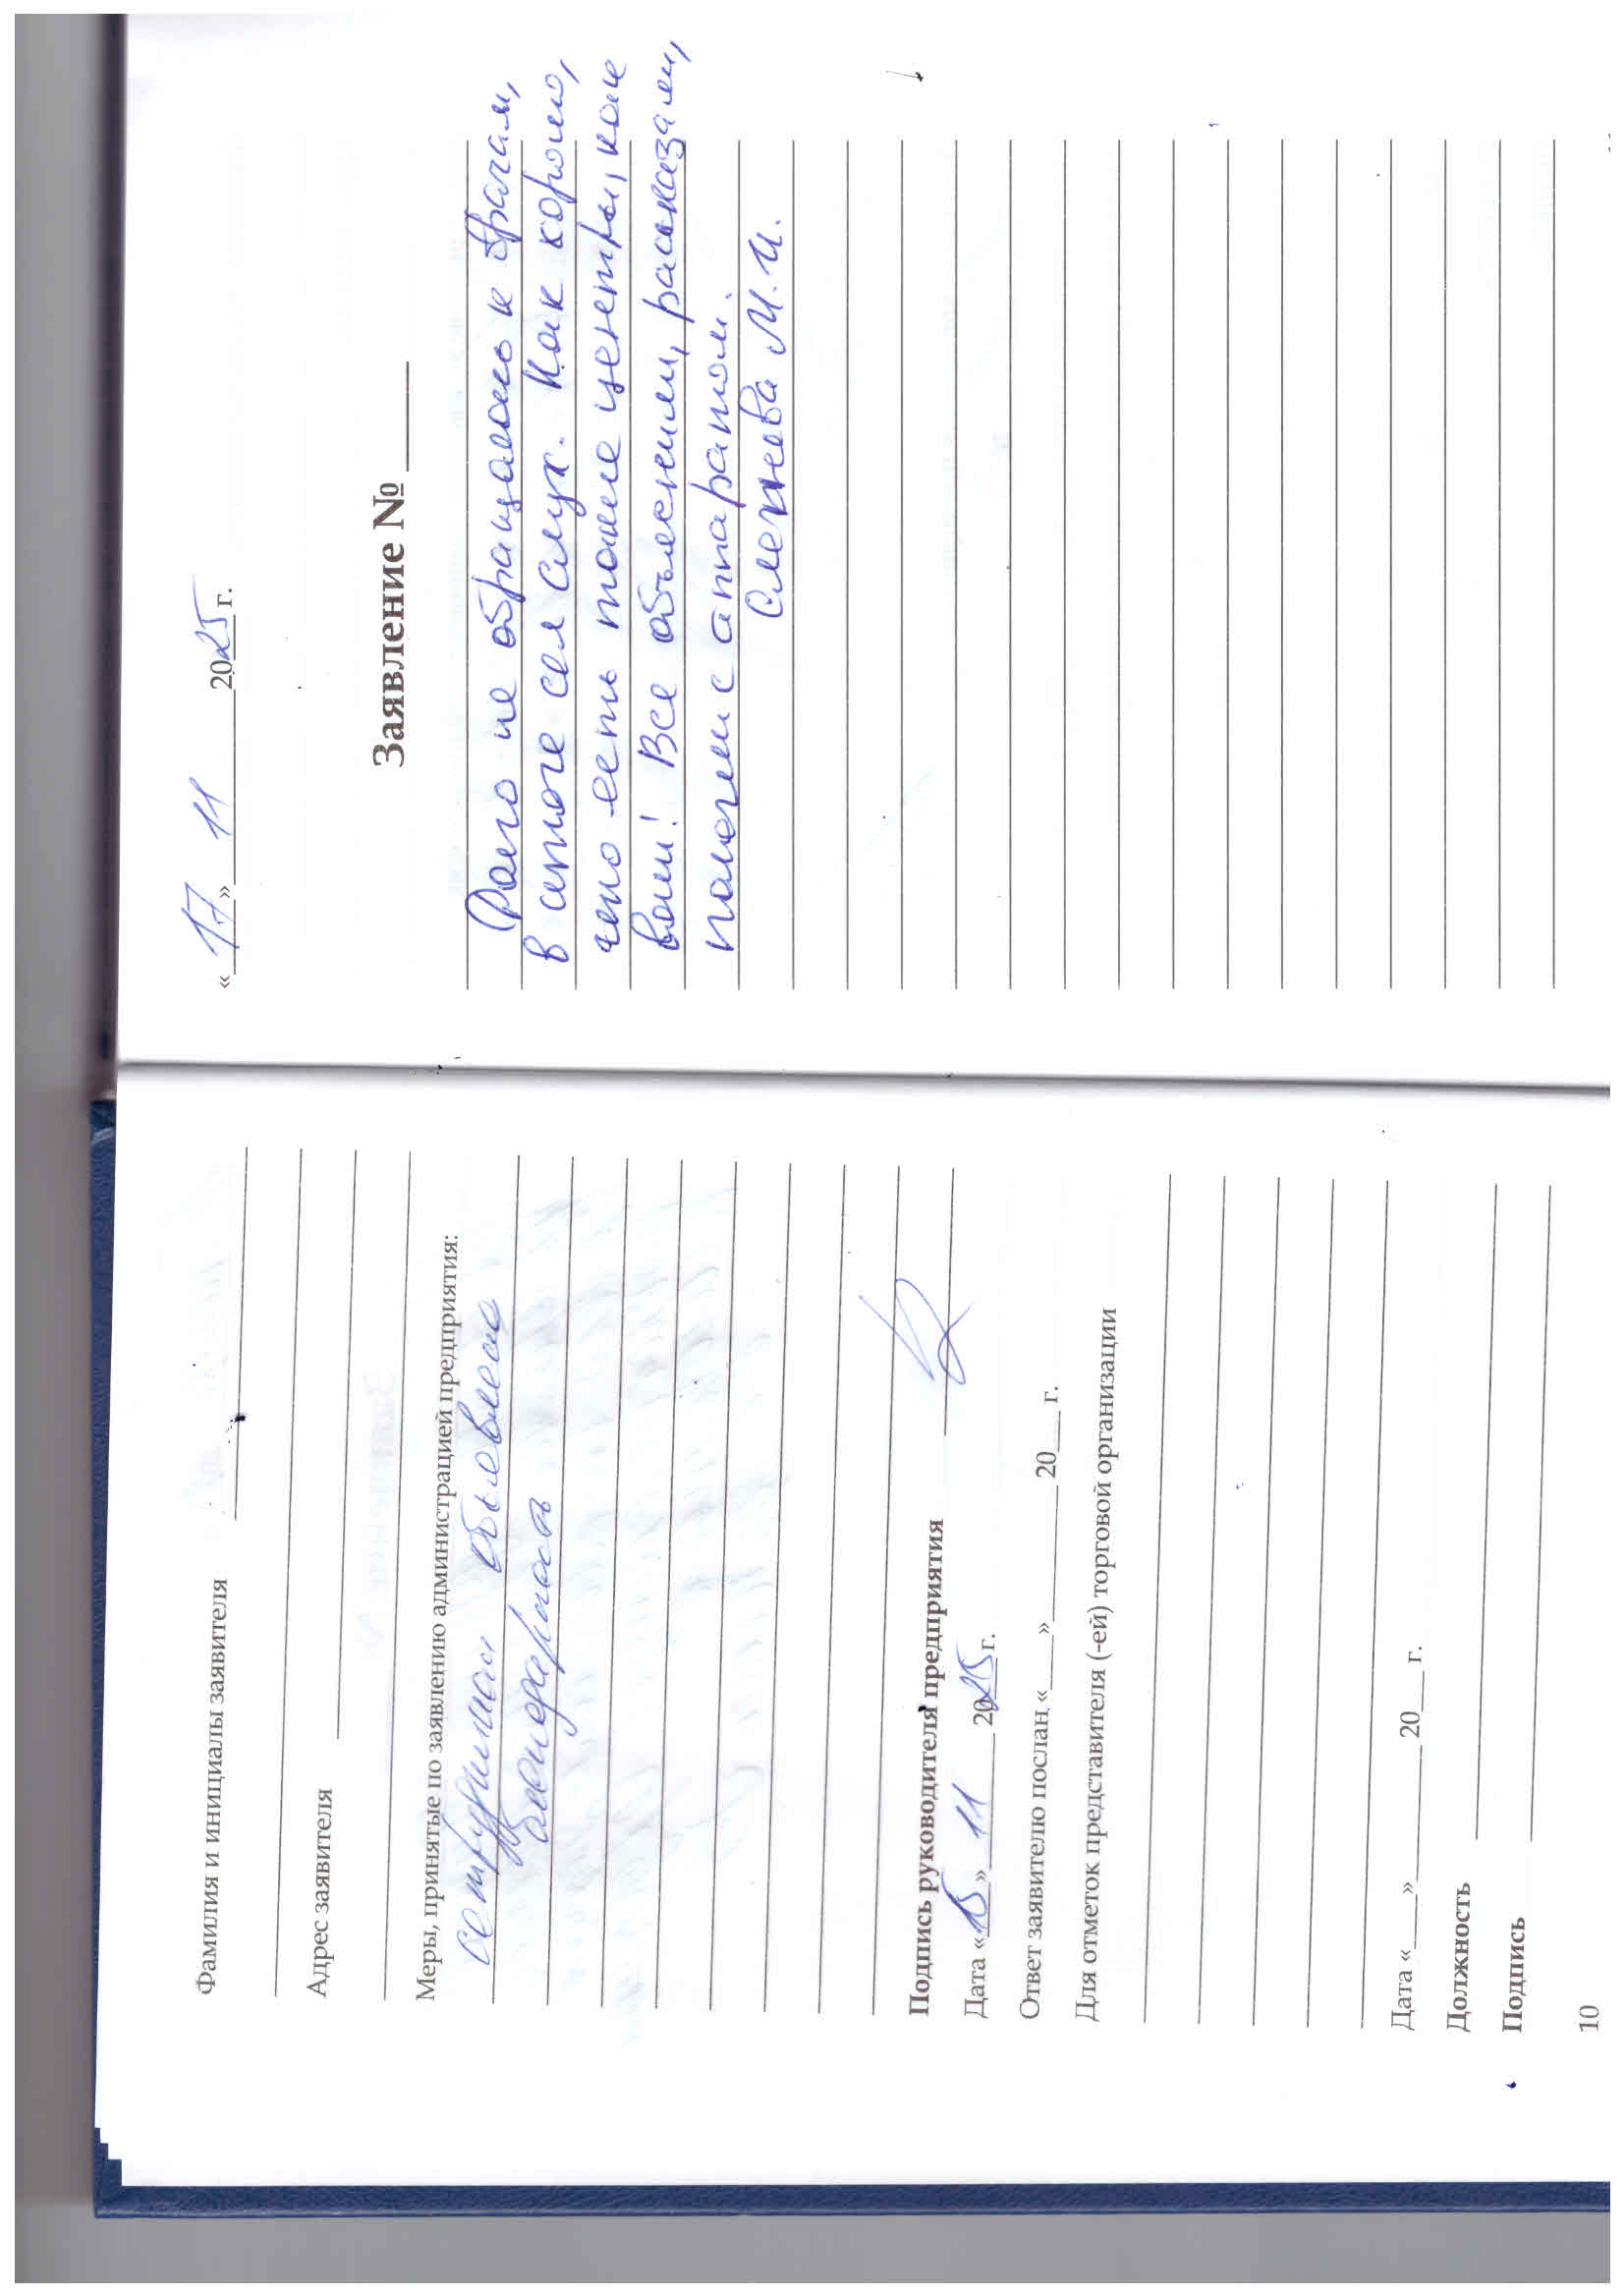 Фамилия и инициалы заявителя
Адрес заявителя
Меры, принятые по заявлению администрацией предприятия:
сотрудникам объявлена
благодарность
Подпись руководителя предприятия
Дата «15» 11 2025 г.
Ответ заявителю послан «___» ________ 20___ г.
Для отметок представителя (-ей) торговой организации
Дата «___» ________ 20___ г.
Должность
Подпись
10
«17» 11 2025 г.
Заявление № ____
Долго не обращалась к врачам,
в итоге сел слух. Как хорошо,
что есть такие центры, как
ваш! Все объяснили, рассказали,
помогли с аппаратом.
М.И.